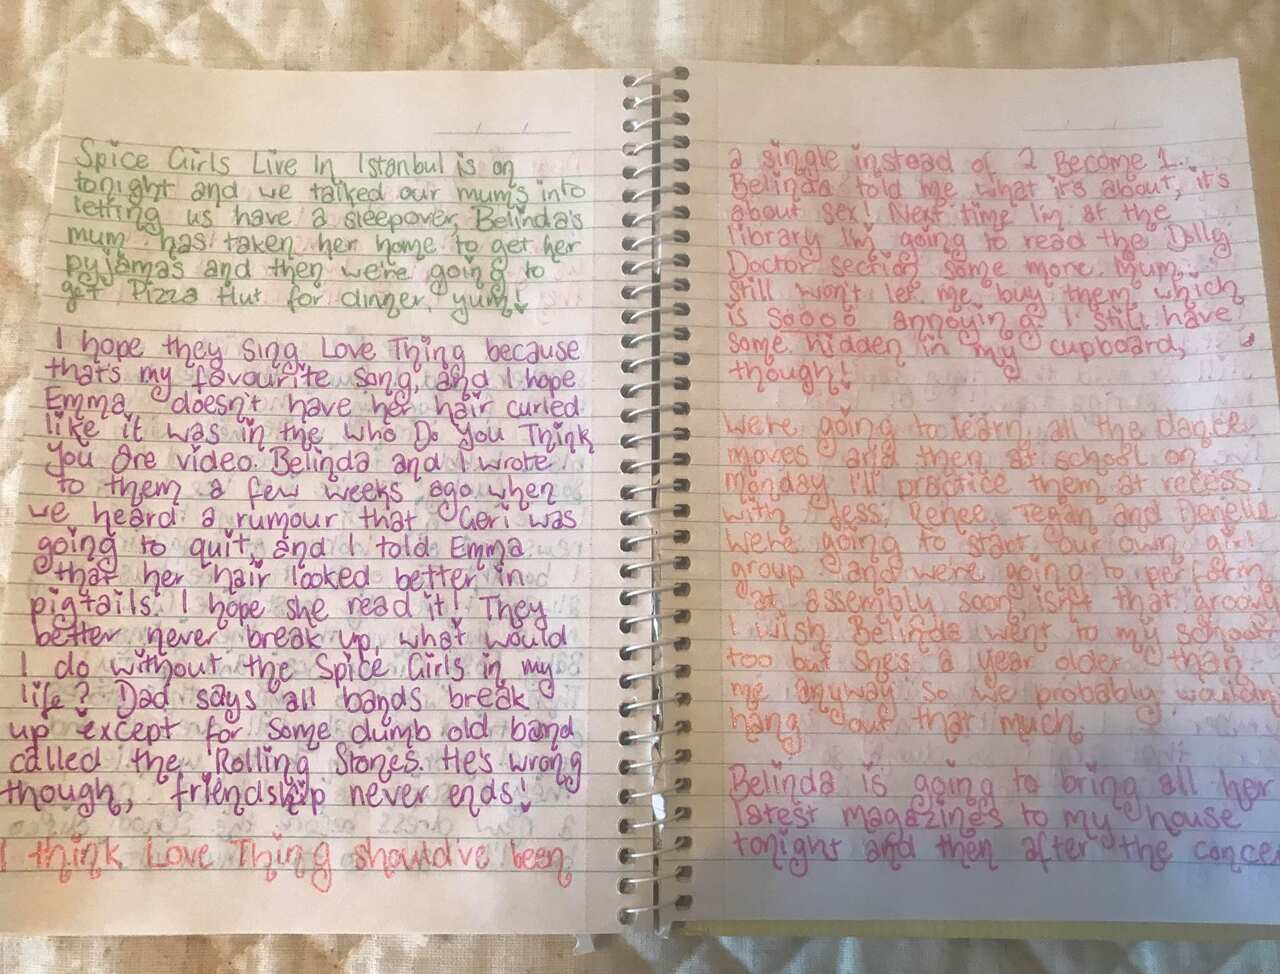 Spice Girls Live In Istanbul is on
tonight and we talked our mums into
letting us have a sleepover, Belinda's
mum has taken her home to get her
pyjamas and then we're going to
get Pizza Hut for dinner, yum!
I hope they sing Love Thing because
that's my favourite song, and I hope
Emma doesn't have her hair curled
like it was in the Who Do You Think
You Are video. Belinda and I wrote
to them a few weeks ago when
we heard a rumour that Geri was
going to quit, and I told Emma
that her hair looked better in
pigtails. I hope she read it! They
better never break up, what would
I do without the Spice Girls in my
life? Dad says all bands break
up except for some dumb old band
called the Rolling Stones. He's wrong
though, friendship never ends!
I think Love Thing should've been
a single instead of 2 Become 1.
Belinda told me what it's about, it's
about sex! Next time I'm at the
library I'm going to read the Dolly
Doctor section some more. Mum
still won't let me buy them which
is soooo annoying. I still have
some hidden in my cupboard,
though!
We're going to learn all the dance
moves and then at school on
Monday I'll practice them at recess
with Jess, Renee, Tegan and
We're going to start our own girl
group and we're going to perform
at assembly soon, isn't that
I wish Belinda went to my school
too but she's a year older than
me anyway so we probably
hang out that much.
Belinda is going to bring all her
latest magazines to my house
tonight and then after the